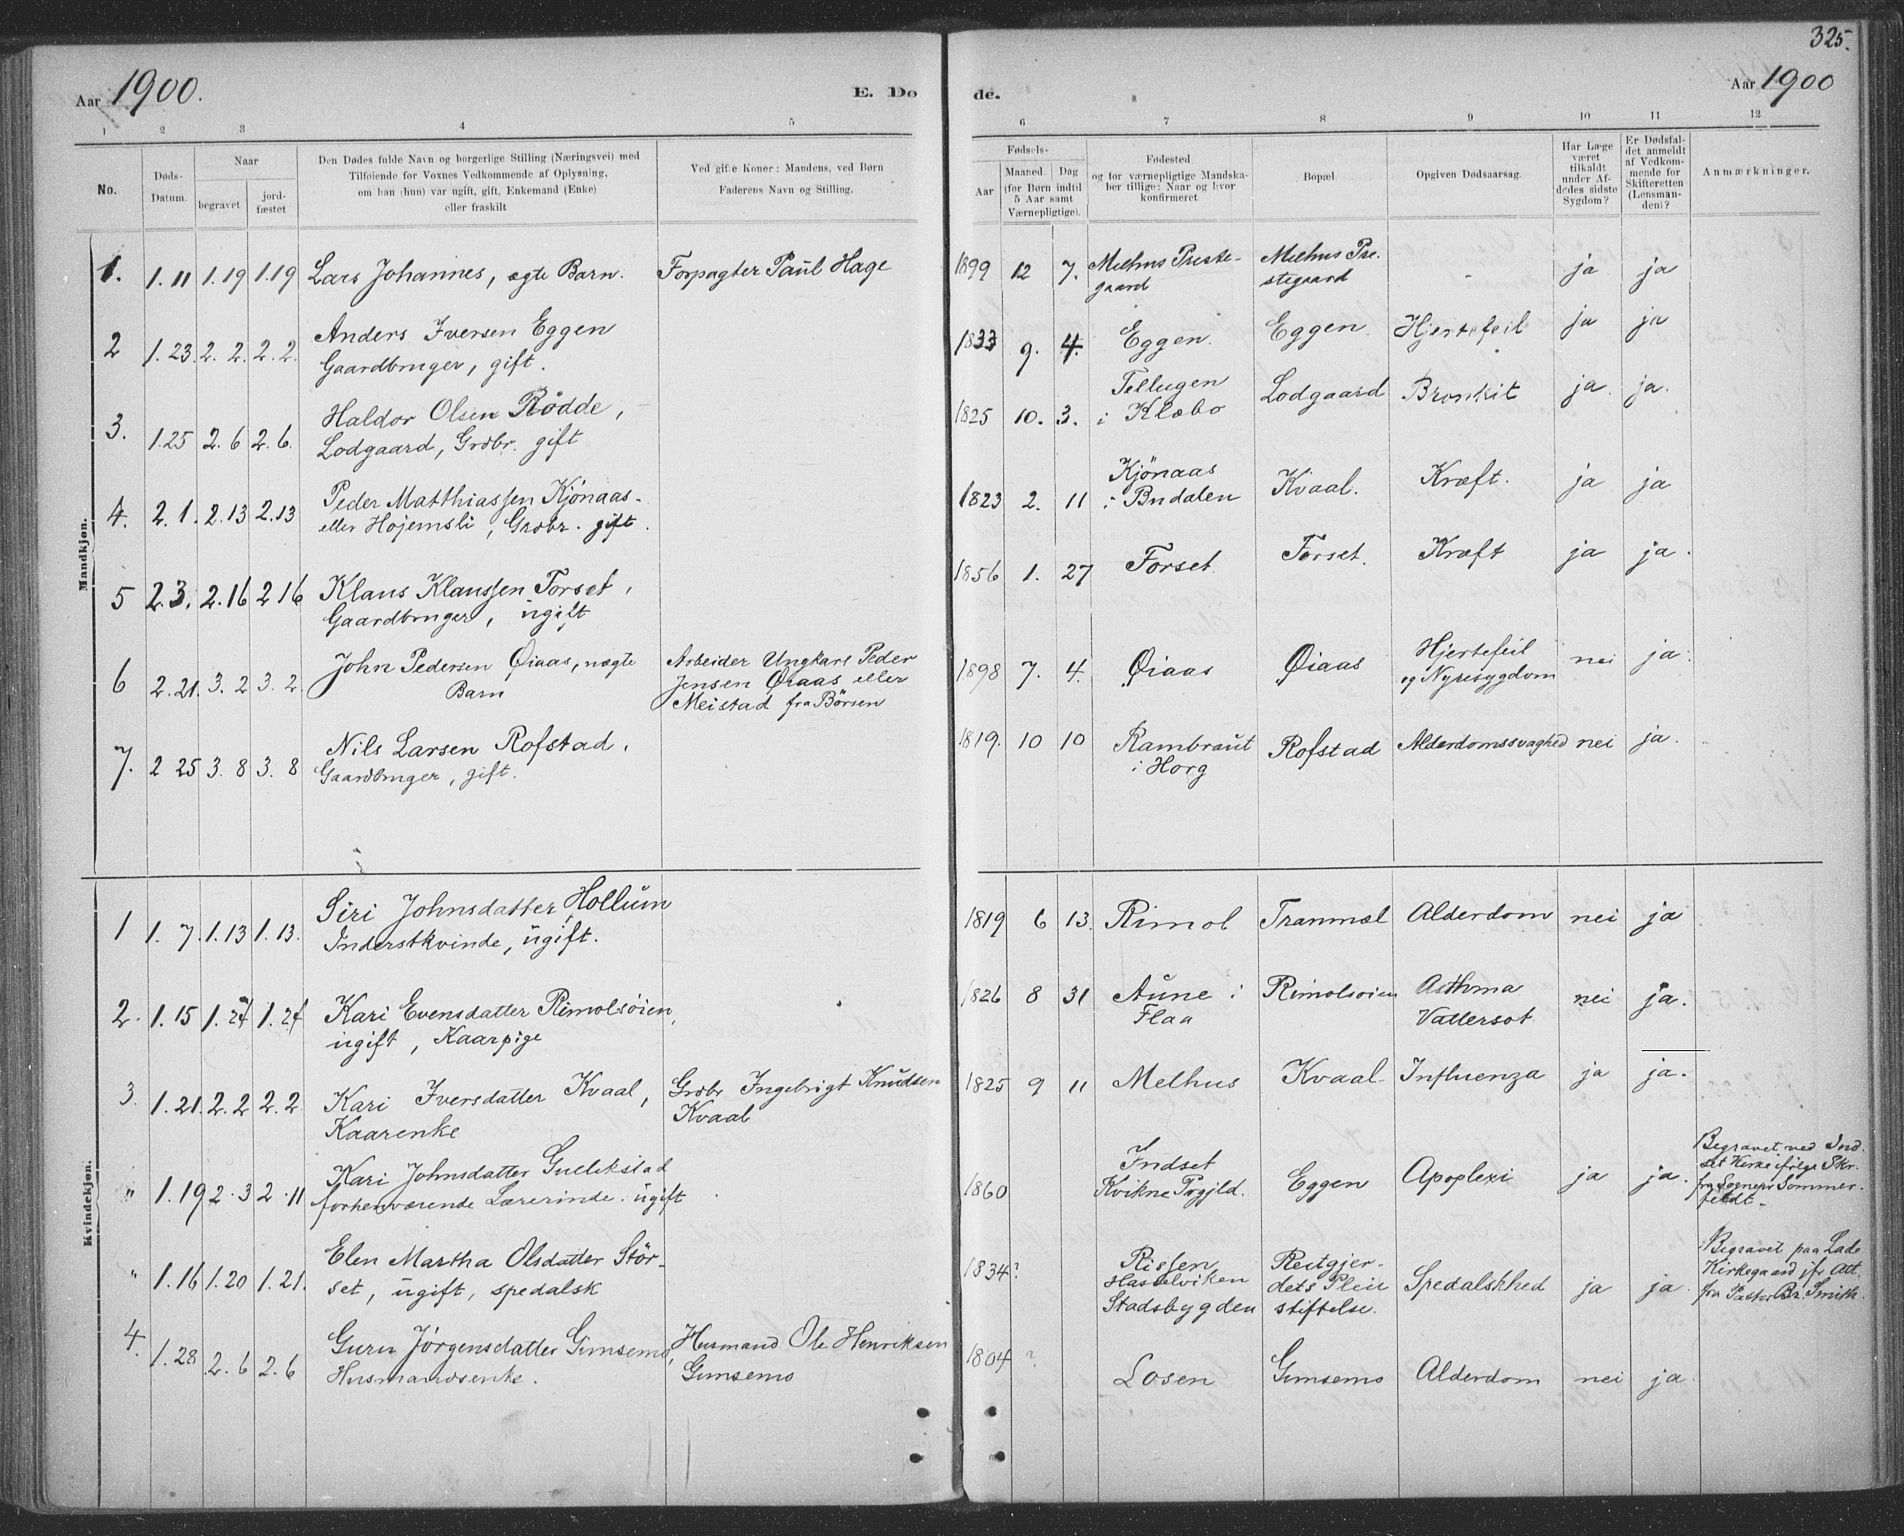 325.
Aar 1900. E. Dø de. Aar 1900
1 2 3 4 5 6 7 8 9 10 11 12
No.
Døds-
Datum.
Naar
begravet
jord-
fæstet
Den Dødes fulde Navn og borgerlige Stilling (Næringsvei) med
Tilføiende for Voxnes Vedkommende af Oplysning,
om han (hun) var ugift, gift, Enkemand (Enke)
eller fraskilt
Ved gifte Koner: Mandens, ved Børn
Faderens Navn og Stilling.
Fødsels-
Aar
Maaned. Dag
(for Børn indtil
5 Aar samt
Værnepligtige).
Fødested
og for værnepligtige Mandska-
ber tillige: Naar og hvor
konfirmeret
Bopæl.
Opgiven Dødsaarsag.
Har Læge
været
tilkaldt
under Af-
dødes sidste
Sygdom?
Er Dødsfal-
det anmeldt
af Vedkom-
mende for
Skifteretten
(Lensman-
den)?
Anmærkninger.
Mandkjøn.
1. 1.11 1.19 1.19 Lars Johannes, ægte Barn. Forpagter Paul Hage 1899 12 7. Melhus Preste- Melhus Pre- - ja ja
gaard stegaard
2 1.23. 2.2. 2.2. Anders Iversen Eggen 1833 9. 4. Eggen. Eggen. Hjertefeil ja ja
Gaardbruger, gift.
3. 1.25 2.6 2.6. Haldor Olsen Rødde, 1825 10. 3. Tellugen Lodgaard Bronkit ja ja.
Lodgaard, Grdbr. gift i Klæbo
4. 2.1. 2.13 2.13 Peder Matthiassen Kjønaas- 1823 2. 11 Kjønaas Kvaal. Kræft. ja ja
eller Hojemsli, Grdbr. gift. i Budalen
5 2.3. 2.16 2 16 Klaus Klaussen Forset, 1856 1. 27 Forset. Forset. Kræft ja ja.
Gaardbruger, ugift
6 2.21. 3.2 3.2. John Pedersen Øiaas, uægte Arbeider Ungkarl Peder 1898 7. 4. Øiaas Øiaas Hjertefeil nei ja.
Barn Jensen Øiaas eller og Nyresygdom
Meistad fra Børsen
7. 2 25 3.8 3.8 Nils Larsen Rofstad. 1819. 10 10 Rambraut Rofstad Alderdomssvaghed nei ja.
Gaardbruger, gift. i Horg
Kvindekjøn.
1 1.7. 1.13 1.13. Siri Johnsdatter Hollum 1819 6 13. Rimol Tranmæl Alderdom nei ja
Inderstkvinde, ugift.
2. 1.15 1.24 1.24 Kari Evensdatter Rimolsøien, 1826 8 31 Aune i Rimolsøien Asthma nei ja.
ugift, Kaarpige Flaa Vattersot
3. 1.21. 2.2 2.2 Kari Iversdatter Kvaal, Grdbr Ingebrigt Knudsen 1825 9 11 Melhus Kvaal Influenza ja ja.
Kaarenke Kvaal
" 1.19 2.3 2.11 Kari Johnsdatter Gullikstad 1860 Indset Eggen Apoplexi ja ja. Begravet ved Ind-
forhenværende Lærerinde. ugift Kvikne Prgjld. set Kirke ifølge Skr.
fra Sognepr Sommer-
feldt.
" 1.16 1.20 1.21. Elen Martha Olsdatter Stør- 1834? Rissen Reitgjer- Spedalskhed ja ja Begravet paa Lade
set, ugift, spedalsk Hasselviken dets Pleie Kirkegaard ifr Att.
Stadsbygden stiftelse. fra Pastor Br. Smith.
4. 1.28 2.6 2.6 Guru Jørgensdatter Gimsemo, Husmand Ole Henriksen 1804? Losen Gimsemo Alderdom nei ja
Husmandsenke. Gimsemo